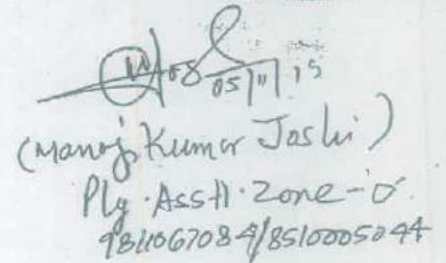 05/11/15
(Manoj Kumar Joshi)
Plg. Asstt. Zone-'O'
9811067084/8510005044